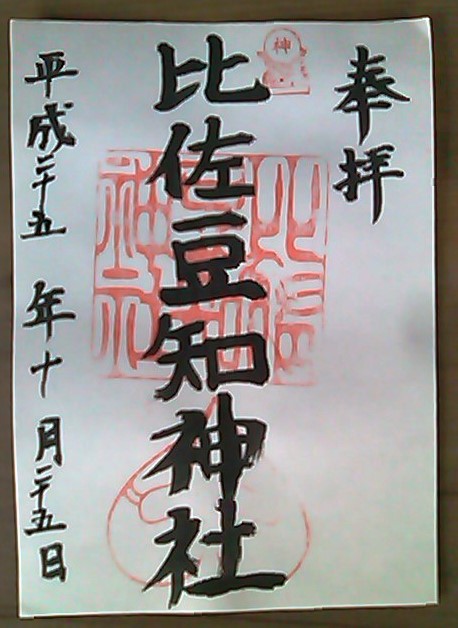 奉拝
神
比佐豆知神社
平成二十五年十月二十五日